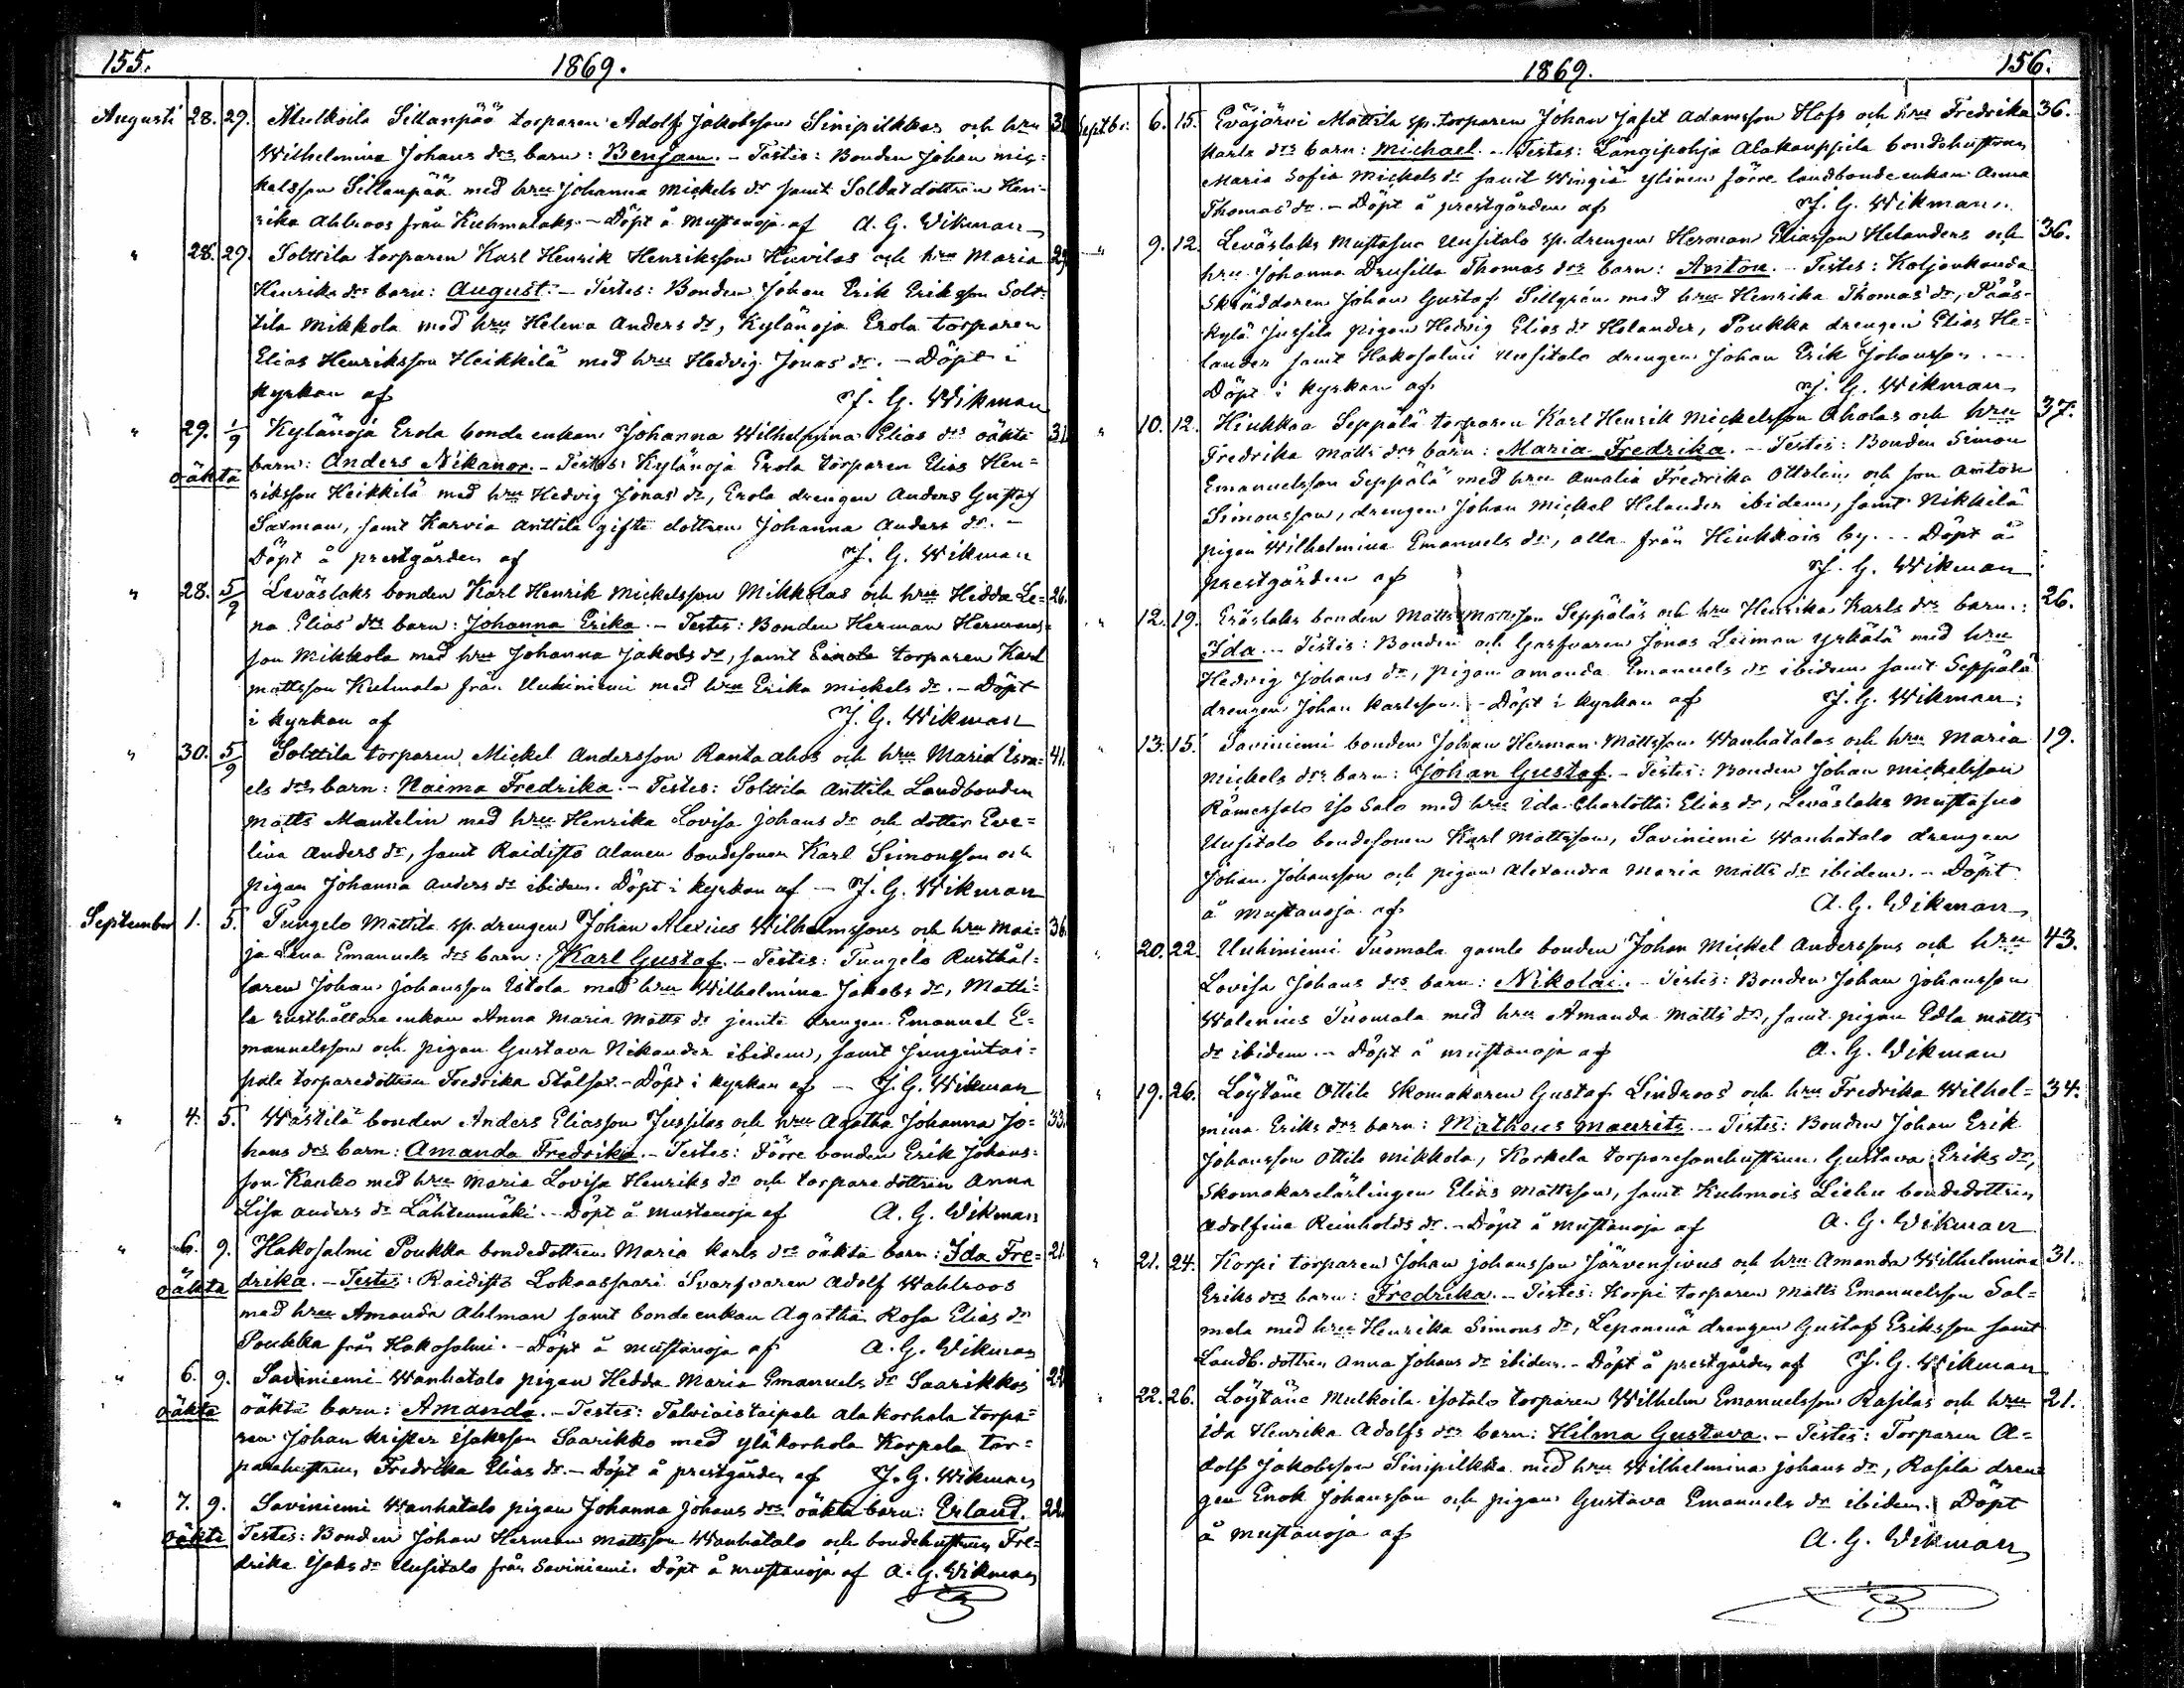 155.
1869.
Augusti 28. 29. Mulkoila Sillanpää torparen Adolf Jakobsson Sinipilkkas och hru
Wilhelmina Johans drs barn: Benjam. - Testis: Bonden Johan mic=
kelsson Sillanpää med hru Johanna Mickels dr samt Soldatdottren Hen=
rika Ahlroos från Kuhmalaks. - Döpt å Mustanoja af A. G. Wikman
" 28. 29. Solttila torparen Karl Henrik Henriksson Huvilas och hru Maria 29
Henriks drs barn: August. - Testes: Bonden Johan Erik Eriksson Solt=
tila Mikkola med hru Helena Anders dr, Kylänoja Erola torparen
Elias Henriksson Heikkilä med hru Hedvig Jonas dr. - Döpt i
kyrkan af J. G. Wikman
" 29. 1/9 Kylänoja Erola bonde enkan Johanna Wilhelmina Elias drs oäkta 31
oäkta barn: Anders Nikanor. - Testes: Kylänoja Erola torparen Elias Hen=
riksson Heikkilä med hru Hedvig Jonas dr, Erola drengen Anders Gustaf
Saxman, samt Karvia Anttila gifte dottren Johanna Anders dr. -
Döpt å prestgården af J. G. Wikman
" 28. 5/9 Leväslaks bonden Karl Henrik Mickelsson Mikkolas och hru Hedda Le= 26.
na Elias drs barn: Johanna Erika. - Testes: Bonden Herman Hermans=
son Mikkola med hru Johanna Jakobs dr, samt Einola torparen Karl
Mattsson Kuhmala från Uukiniemi med hru Erika Mickels dr. - Döpt
i kyrkan af J. G. Wikman
" 30. 5/9 Solttila torparen Mickel Andersson Rantaahos och hru Maria Isra= 41.
els drs barn: Naima Fredrika. - Testes: Solttila Anttila Landbonden
Matts Mantelin med hru Henrika Lovisa Johans dr och dotter Eve=
lina Anders dr, samt Raidisto Alanen bondesonen Karl Simonsson och
pigan Johanna Anders dr ibidem. Döpt i kyrkan af - J. G. Wikman
September 1. 5. Tungelo Mattila sp. drengen Johan Alexius Wilhelmssons och hru Mai= 36.
ja Lena Emanuels drs barn: Karl Gustaf. - Testis: Tungelo Rusthål=
laren Johan Johansson Istola med hru Wilhelmina Jakobs dr, Matti=
la rusthållare enkan Anna Maria Matts dr jemte drengen Emanuel E=
manuelsson och pigan Gustava Nikander ibidem, samt Jungintai=
pale torparedottren Fredrika Stålfot. - Döpt i kyrkan af - J. G. Wikman
" 4. 5. Wästilä bonden Anders Eliasson Jussilas och hru Agatha Johanna Jo= 33.
hans drs barn: Amanda Fredrika. - Testes: Förre bonden Erik Johans=
son Kauko med hru Maria Lovisa Henriks dr och torparedottren Anna
Lisa Anders dr Lähteenmäki. - Döpt å Mustanoja af A. G. Wikman
" 6. 9. Hakosalmi Poukka bondedottren Maria Karls drs oäkta barn: Ida Fre= 21.
oäkta drika. - Testes: Raidisto Lokaassaari Svarfvaren Adolf Wahlroos
med hru Amanda Ahlman samt bonde enkan Agatha Rosa Elias dr
Poukka från Hakosalmi. - Döpt å Mustanoja af A. G. Wikman
" 6. 9. Saviniemi Wanhatalo pigan Hedda Maria Emanuels dr Saarikkos
oäkta oäkta barn: Amanda. - Testes: Talviaistaipale Alakorhola torpa=
ren Johan Krister Isaksson Saarikko med Yläkorhola Korpela tor=
parehustrun Fredrika Elias dr. - Döpt å prestgården af J. G. Wikman
" 7. 9. Saviniemi Wanhatalo pigan Johanna Johans drs oäkta barn: Erland. 22.
oäkta Testes: Bonden Johan Herman Mattsson Wanhatalo och bondehustrun Fre=
drika Isaks dr Uusitalo från Saviniemi. Döpt å Mustanoja af A. G. Wikman
1869.
156.
Septbr. 6. 15. Eväjärvi Mattila sp. torparen Johan Jafet Adamsson Hofs och hru Fredrika 36.
Karls drs barn: Michael. - Testes: Längipohja Alakauppila bondehustrun
Maria Sofia Mickels dr samt Wingiä Ylinen förre landbonde enkan Anna
Thomas dr. - Döpt å prestgården af J. G. Wikman.
" 9. 12. Leväslaks Mustasuo Uusitalo sp. drengen Herman Eliasson Helanders och 36.
hru Johanna Drusilla Thomas drs barn: Anton. - Testes: Koljonkanda
Skräddaren Johan Gustaf Sillgrén med hru Henrika Thomas dr, Pääs=
kylä Jussila pigan Hedvig Elias dr Helander, Poukka drengen Elias He=
lander samt Hakosalmi Uusitalo drengen Johan Erik Johansson. -
Döpt i kyrkan af J. G. Wikman
" 10. 12. Hinkkaa Seppälä torparen Karl Henrik Mickelsson Aholas och hru 37.
Fredrika Matts drs barn: Maria Fredrika. - Testes: Bonden Simon
Emanuelsson Seppälä med hru Amalia Fredrika Ottelin, och son Anton
Simonsson, drengen Johan Mickel Helander ibidem, samt Nikkilä
pigan Wilhelmina Emanuels dr, alla från Hinkkois by. - Döpt å
prestgården af J. G. Wikman
" 12. 19. Eräslaks bonden Matts Mattsson Seppäläs och hru Henrika Karls drs barn: 26.
Ida. - Testis: Bonden och Garfvaren Jonas Leiman Yrkälä med hru
Hedvig Johans dr, pigan Amanda Emanuels dr ibidem samt Seppälä
drengen Johan Karlsson. - Döpt i kyrkan af J. G. Wikman.
" 13. 15. Saviniemi bonden Johan Herman Mattsson Wanhatalos och hru Maria 19.
Mickels drs barn: Johan Gustaf. - Testes: Bonden Johan Mickelsson
Rämessalo Iso Salo med hru Ida Charlotta Elias dr, Leväslaks Mustasuo
Uusitalo bondesonen Karl Mattsson, Saviniemi Wanhatalo drengen
Johan Johansson och pigan Alexandra Maria Matts dr ibidem. - Döpt
å Mustanoja af A. G. Wikman
" 20. 22. Uukiniemi Tuomala gamle bonden Johan Mickel Anderssons och hru 43.
Lovisa Johans drs barn: Nikolai. - Testes: Bonden Johan Johansson
Walenius Tuomala med hru Amanda Matts dr, samt pigan Edla Matts
dr ibidem. - Döpt å Mustanoja af A. G. Wikman
" 19. 26. Löytäne Ottila Skomakaren Gustaf Lindroos och hru Fredrika Wilhel= 34.
mina Eriks drs barn: Matheus Mauritz. - Testes: Bonden Johan Erik
Johansson Ottila Mikkola, Korkela torparesonehustrun Gustava Eriks dr,
Skomakarelärlingen Elias Mattsson, samt Kuhmois Liehu bondedottren
Adolfina Reinholds dr. - Döpt å Mustanoja af A. G. Wikman
" 21. 24. Korpi torparen Johan Johansson Järvensivus och hru Amanda Wilhelmina 31.
Eriks drs barn: Fredrika. - Testes: Korpi torparen Matts Emanuelsson Sal=
mela med hru Henrika Simons dr, Lepänenä drengen Gustaf Eriksson samt
Landb. dottren Anna Johans dr ibidem. - Döpt å prestgården af J. G. Wikman
" 22. 26. Löytäne Mulkoila Isotalo torparen Wilhelm Emanuelsson Rasilas och hru 21.
Ida Henrika Adolfs drs barn: Hilma Gustava. - Testes: Torparen A=
dolf Jakobsson Sinipilkka med hru Wilhelmina Johans dr, Rasila dren
gen Enok Johansson och pigan Gustava Emanuels dr ibidem. Döpt
å Mustanoja af A. G. Wikman